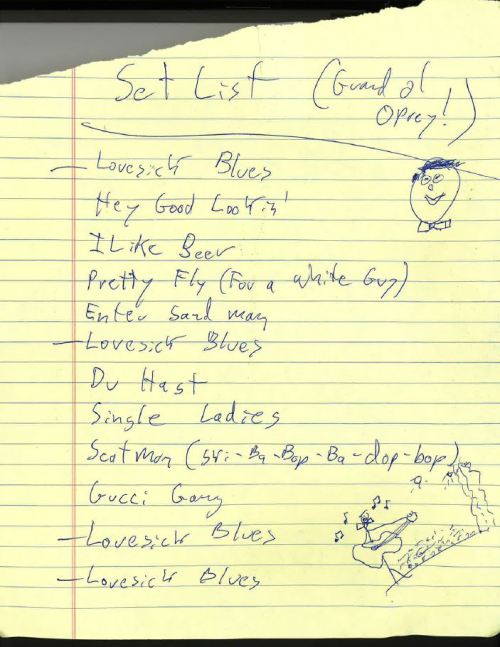 Set List (Guard al
Oprey!)
- Lovesick Blues
Hey Good Lookin'
I Like Beer
Pretty Fly (For a white Guy)
Enter Sand man
- Lovesick Blues
Du Hast
Single Ladies
Scatman (Ski-Ba-Bop-Ba-dop-bop)
Gucci Gang
- Lovesick Blues
- Lovesick Blues